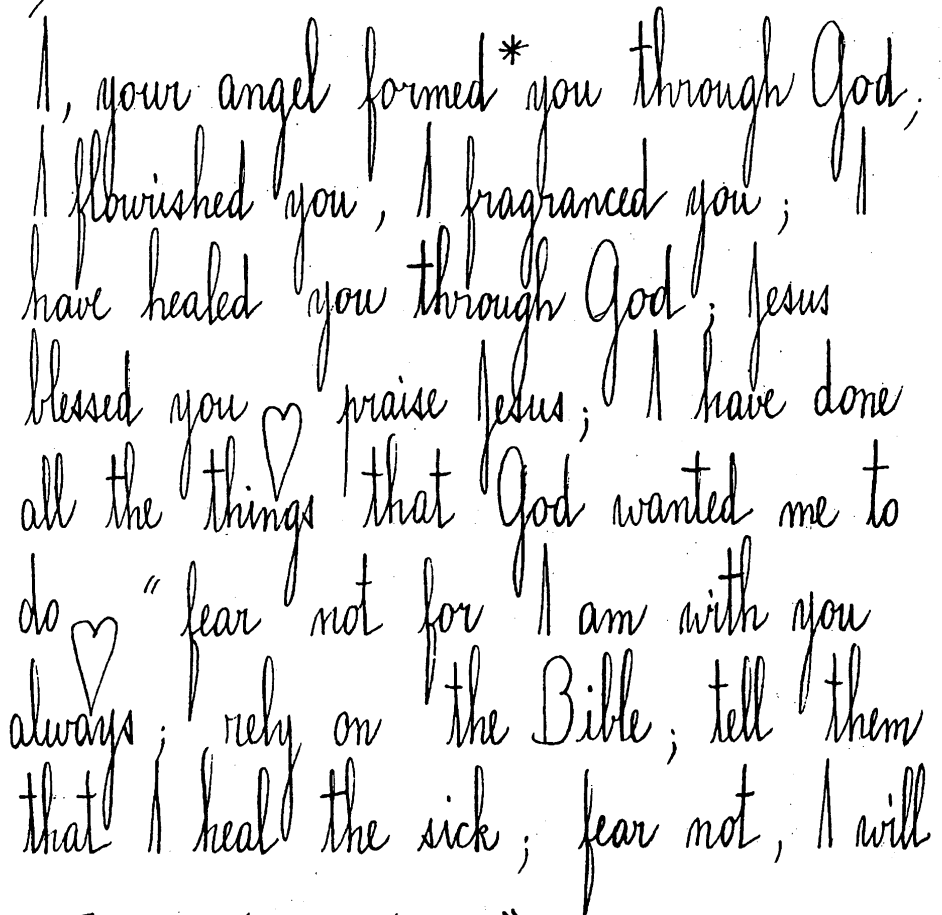 I, your angel formed* you through God;
I flourished you, I fragranced you; I
have healed you through God; Jesus
blessed you ♡ praise Jesus; I have done
all the things that God wanted me to
do ♡ "fear not for I am with you
always; rely on the Bible; tell them
that I heal the sick; fear not, I will